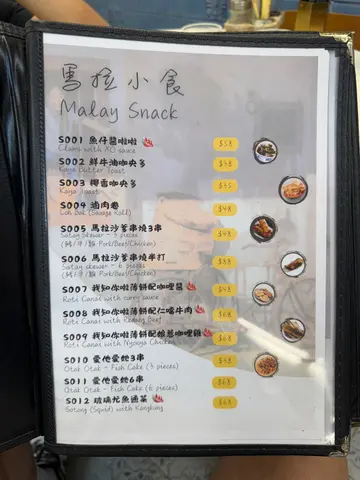 馬拉小食
Malay Snack
S001 魚仔醬啦啦 $58
Clams with XO sauce
S002 鮮牛油咖央多 $38
Kaya Butter Toast
S003 椰香咖央多
Kaya Toast
S004 滷肉卷 $48
Loh Bak (Sausage Roll)
S005 馬拉沙爹串燒3串 $48
Satay Skewer - 3 pieces
(豬/牛/雞 Pork/Beef/Chicken)
S006 馬拉沙爹串燒半打 $88
Satay skewer - 6 pieces
(豬/牛/雞 Pork/Beef/Chicken)
S007 我知你啦薄餅配咖哩醬 $48
Roti Canai with curry sauce
S008 我知你啦薄餅配仁當牛肉 $68
Roti Canai with Rendang Beef
S009 我知你啦薄餅配娘惹咖哩雞 $68
Roti Canai with Nyonya Chicken
S010 愛他愛她3串 $38
Otak Otak - Fish Cake (3 pieces)
S011 愛他愛她6串 $68
Otak Otak - Fish Cake (6 pieces)
S012 琉璃尤魚通菜 $68
Sotong (Squid) with Kangkung